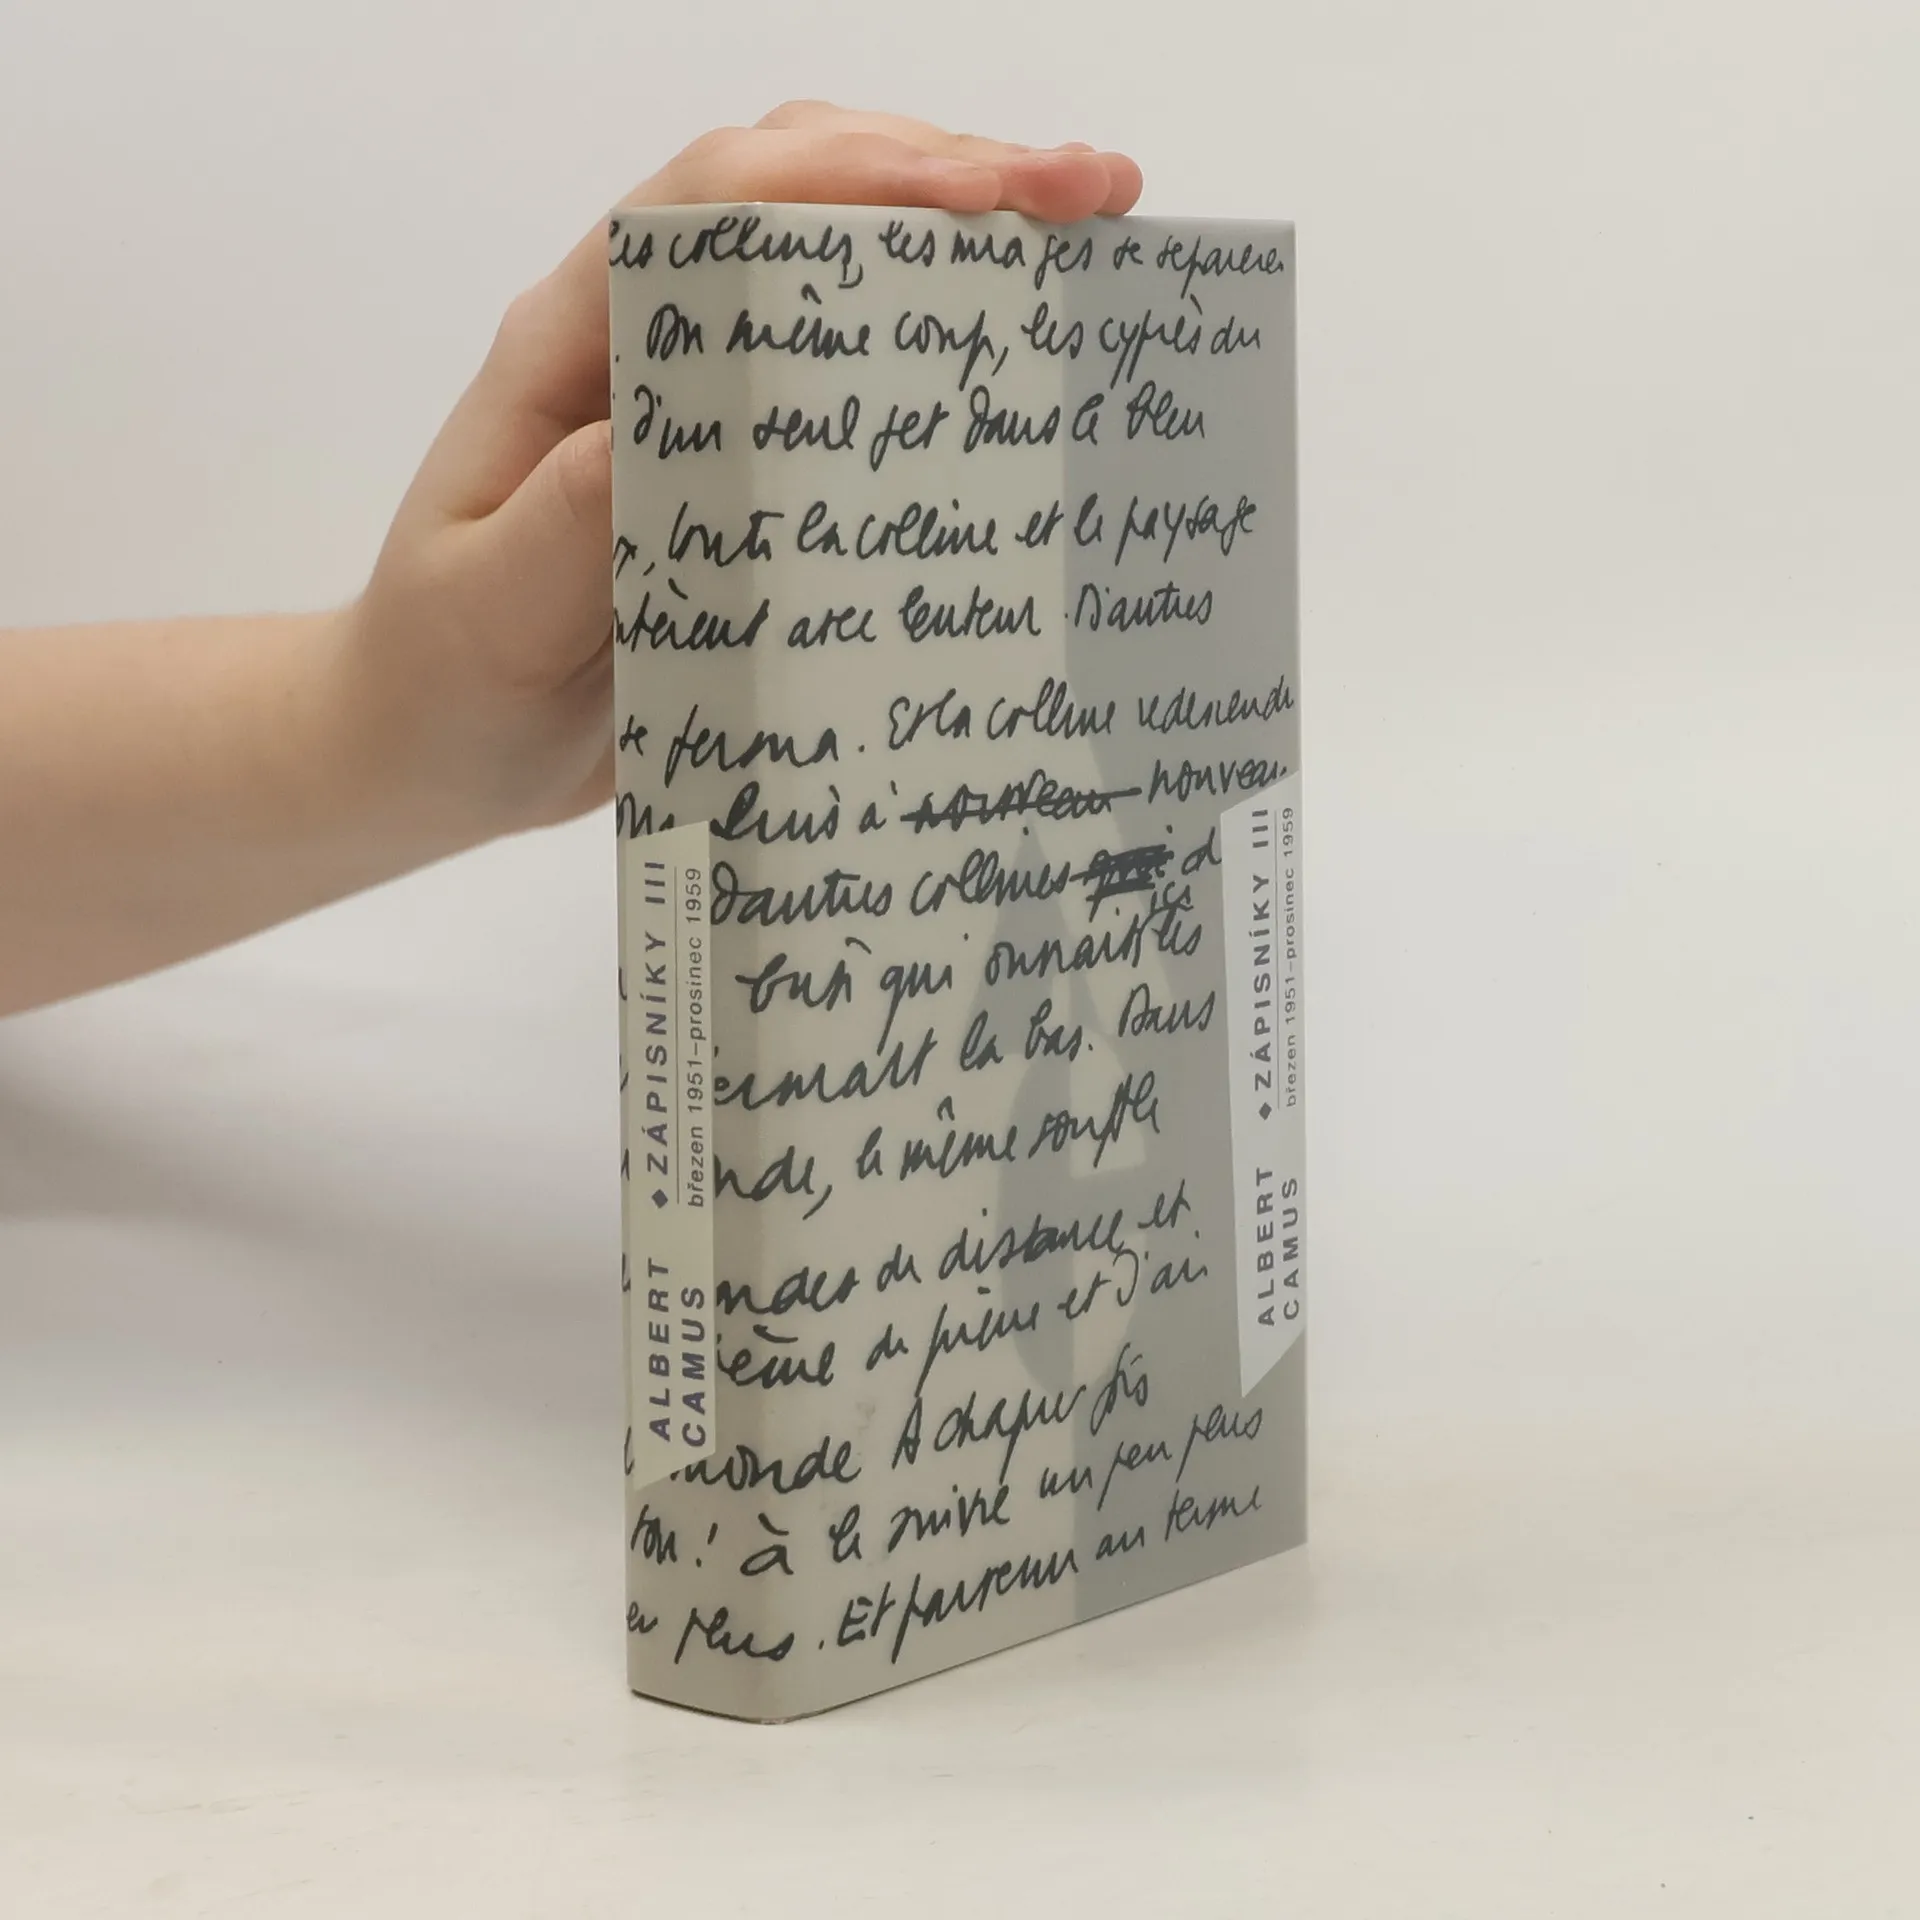 les collines, les nuages se séparèren
. Du même coup, les cyprès du
d'un seul jet dans le bleu
x, toute la colline et le paysage
ntèrent avec lenteur. D'autres
se ferma. Et la colline redescendi
puis à nouveau nouveau
D'autres collines qui d
ici
qui les
là bas. Dans
nde, le même souffle
ndes de distance et
ième de pierre et j'ai
monde A chaque fois
! à le suivre un peu plus
en plus. Et parvenu au terme
ALBERT CAMUS
◆ ZÁPISNÍKY III
březen 1951–prosinec 1959
ALBERT CAMUS
◆ ZÁPISNÍKY III
březen 1951–prosinec 1959